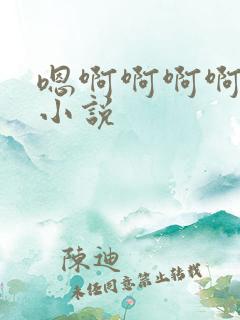 嗯啊啊啊啊
小説
陳迪
未經同意禁止轉載